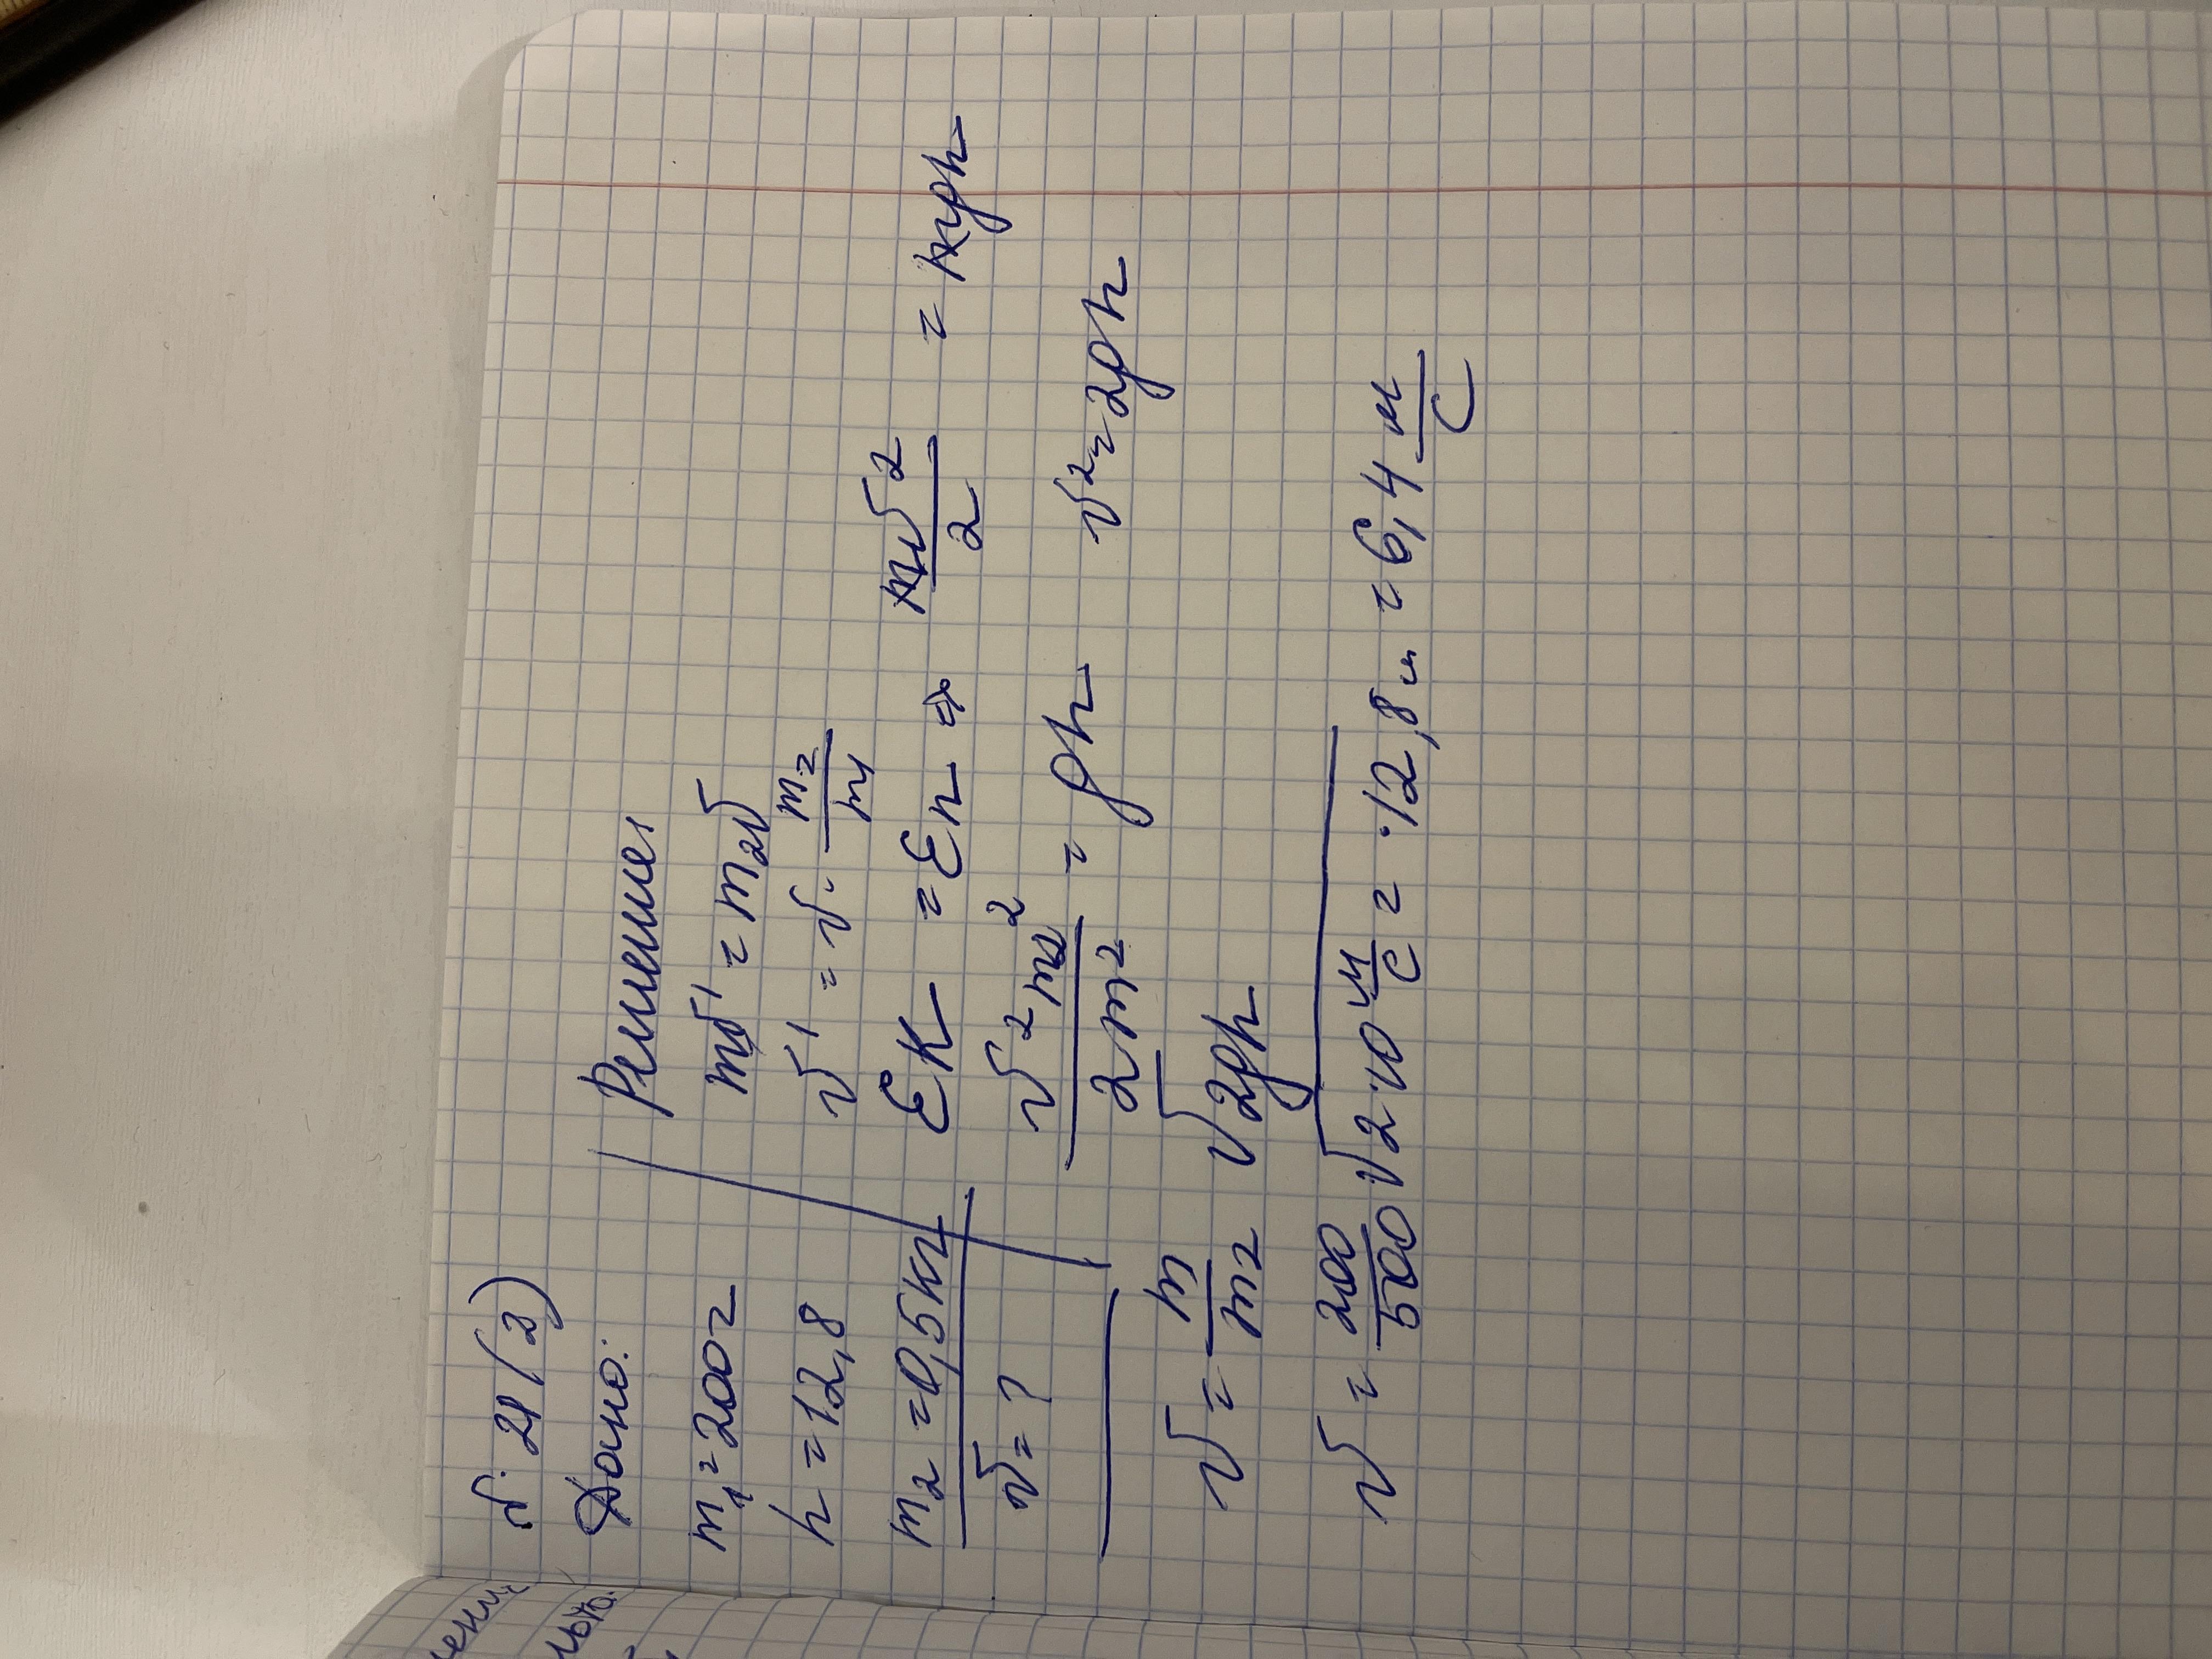 с. 21 (2)
Дано:
m₁ = 200 г
h = 12,8
m₂ = 0,5 кг
v = ?
Решение:
mv' = m₂v
v' = v · m₂/m
EK = Eп ⇒ mv²/2 = mgh
v²m₂²/2m² = gh v² = 2gh
v = m/m₂ √2gh
v = 200/500 √2·10 м/с = ·12,8 м = 6,4 м/с